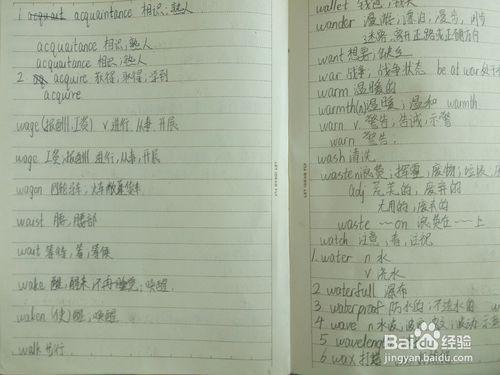 1 acquaintance 相识,熟人
acquaitance 相识,熟人
acquaitance 相识,熟人
2 acquire 获得,取得,学到
acquire
wage (报酬,工资) v 进行,从事,开展
wage 工资,报酬 进行,从事,开展
wagon 四轮马车,火车敞篷货车
waist 腰,腰部
wait 等待,等,等候
wake 醒,醒来,不再睡觉,唤醒
waken (使)醒,唤醒
walk 步行
wallet 钱包
wander 漫游,漂泊,漫步,闲步
迷路,离开正路或正确方向
want 想要,缺少
war 战争,战争状态 be at war 处于
warm 温暖的
warmth(n)温暖,温和 warmth
warn v. 警告,告诫,示警
warn 警告.
wash 清洗
waste n浪费,挥霍,废物,垃圾
adj 荒芜的,废弃的
无用的,废弃的
waste ~ on 浪费在……上
watch 注意,看,注视
1. water n 水
v 浇水
2 waterfull 瀑布
3 waterproof 防水的,不透水的
4 wave n 水波
5 wavelength
6 wax 打蜡
Bai度经验
jingyan.baidu.com